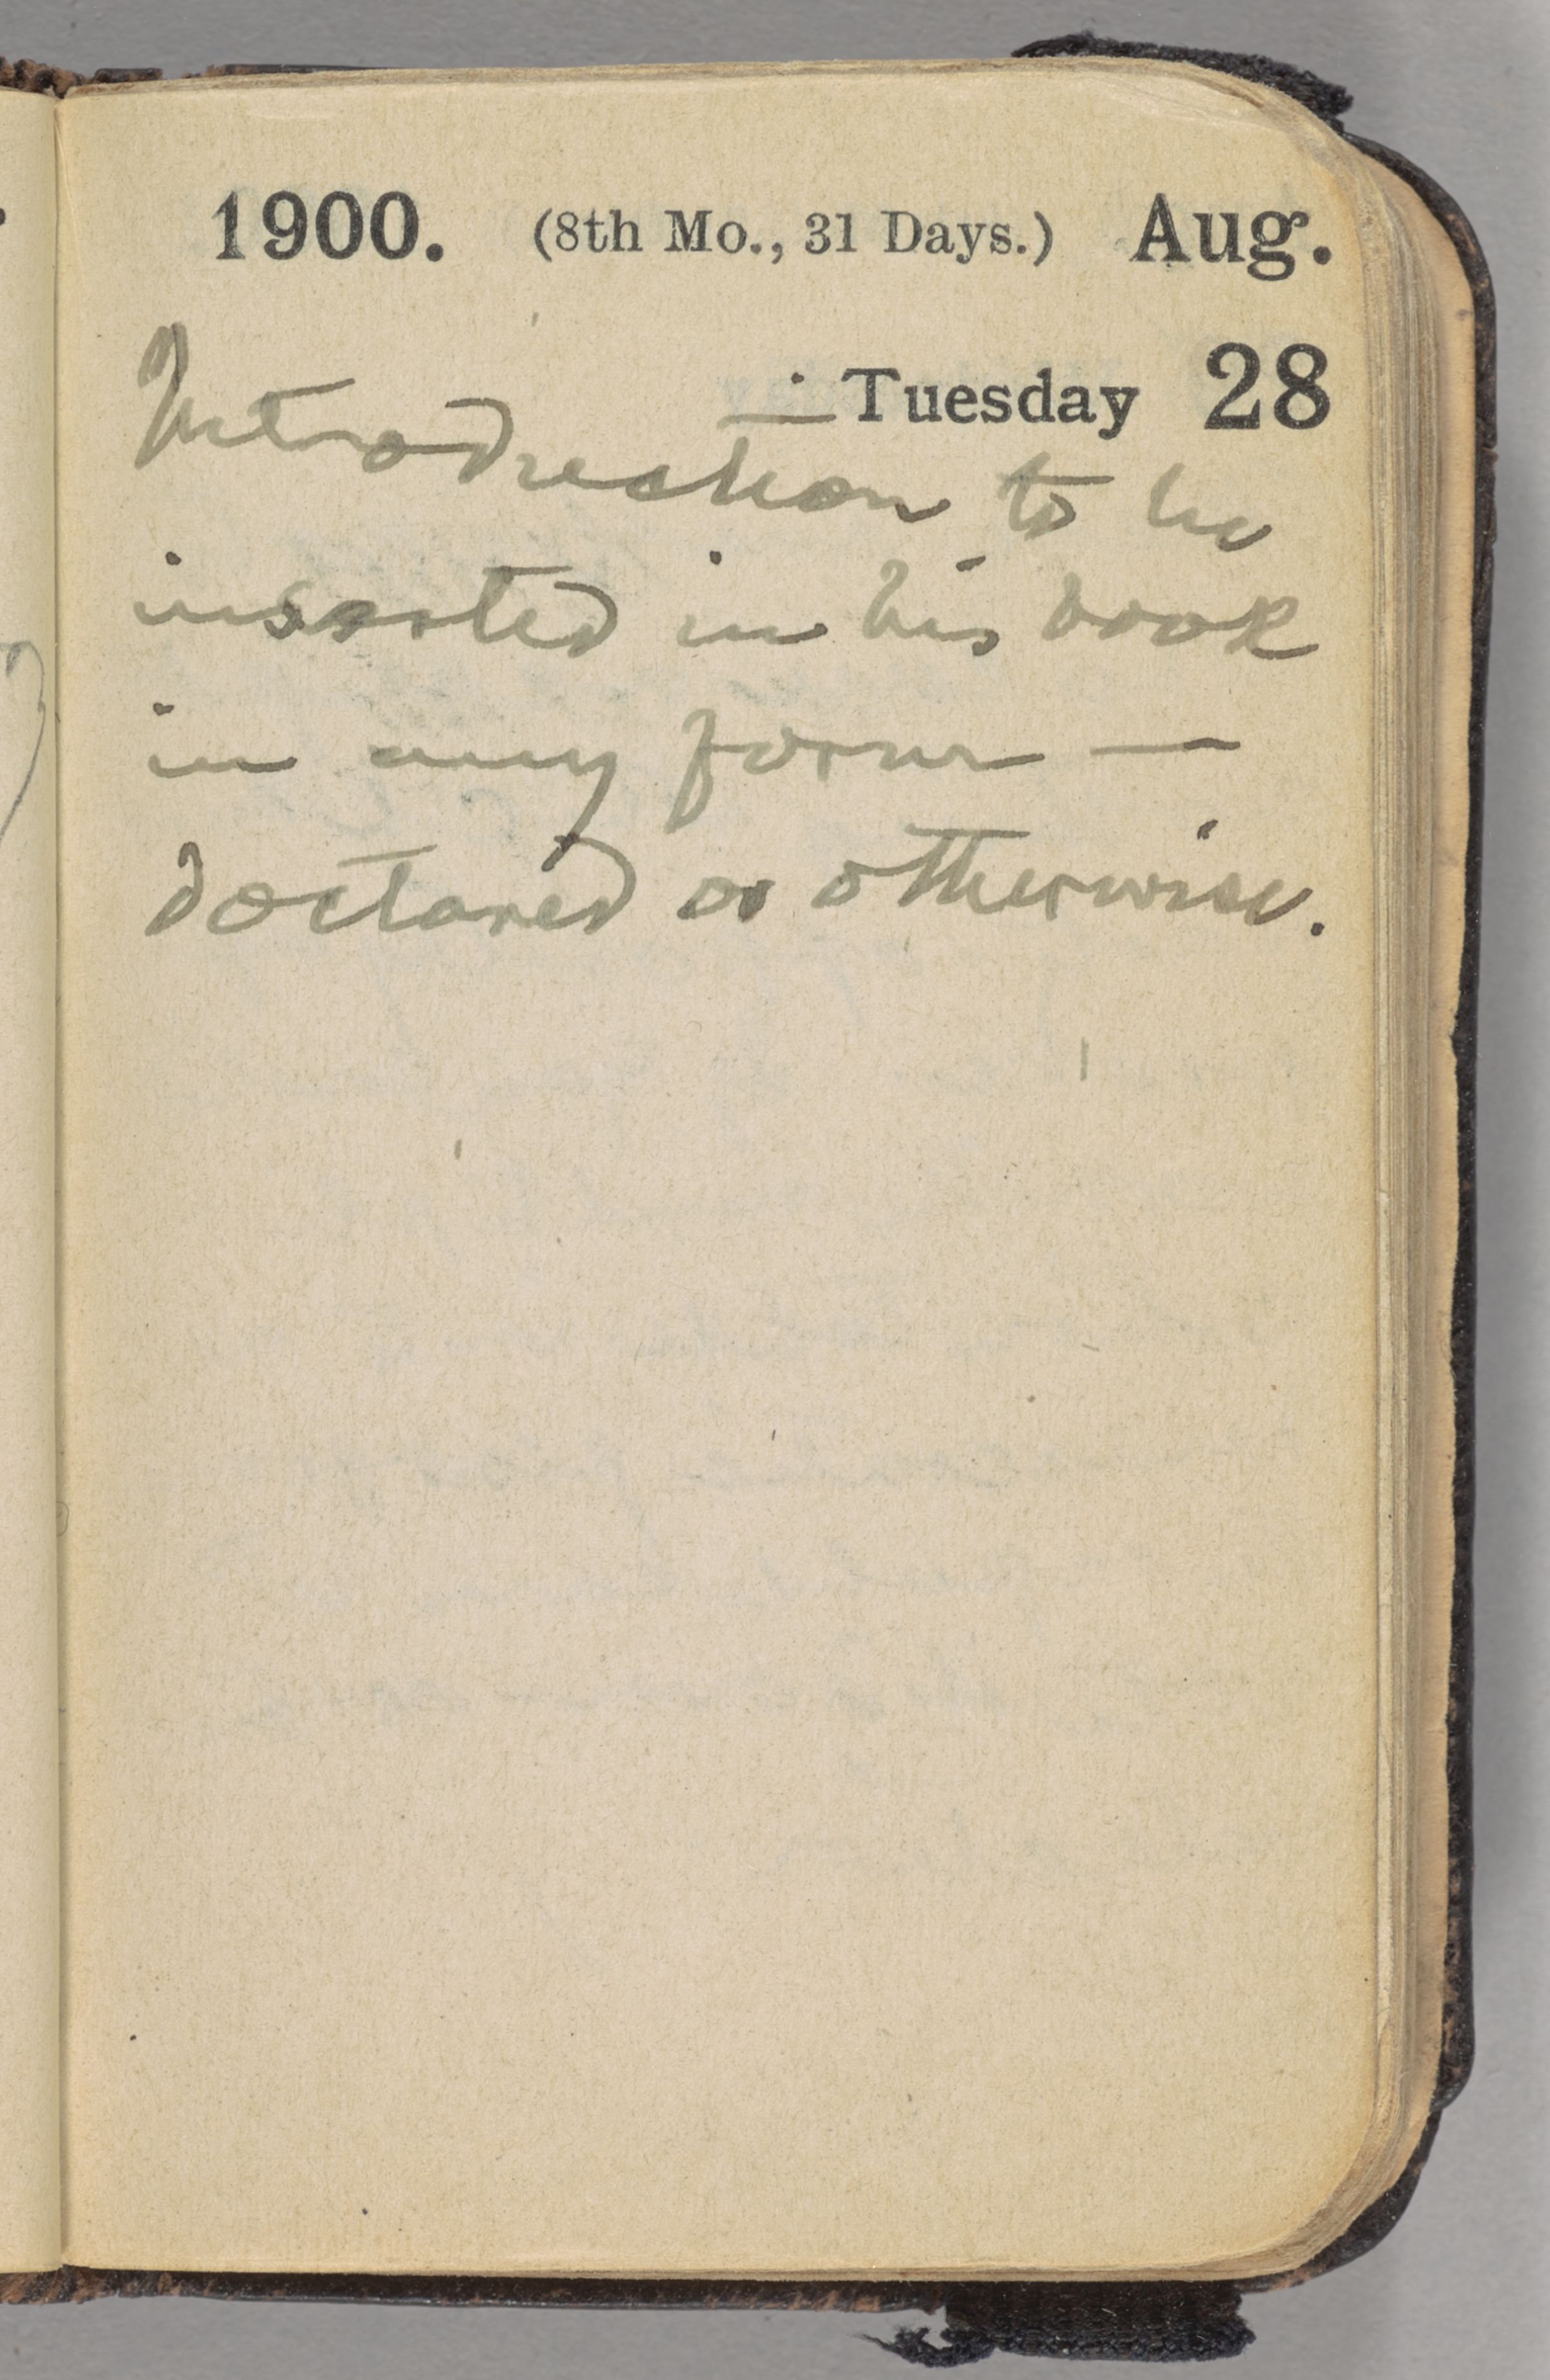 1900. (8th Mo., 31 Days.) Aug.
Tuesday 28
Introduction to be
inserted in his book
in any form —
doctored or otherwise.